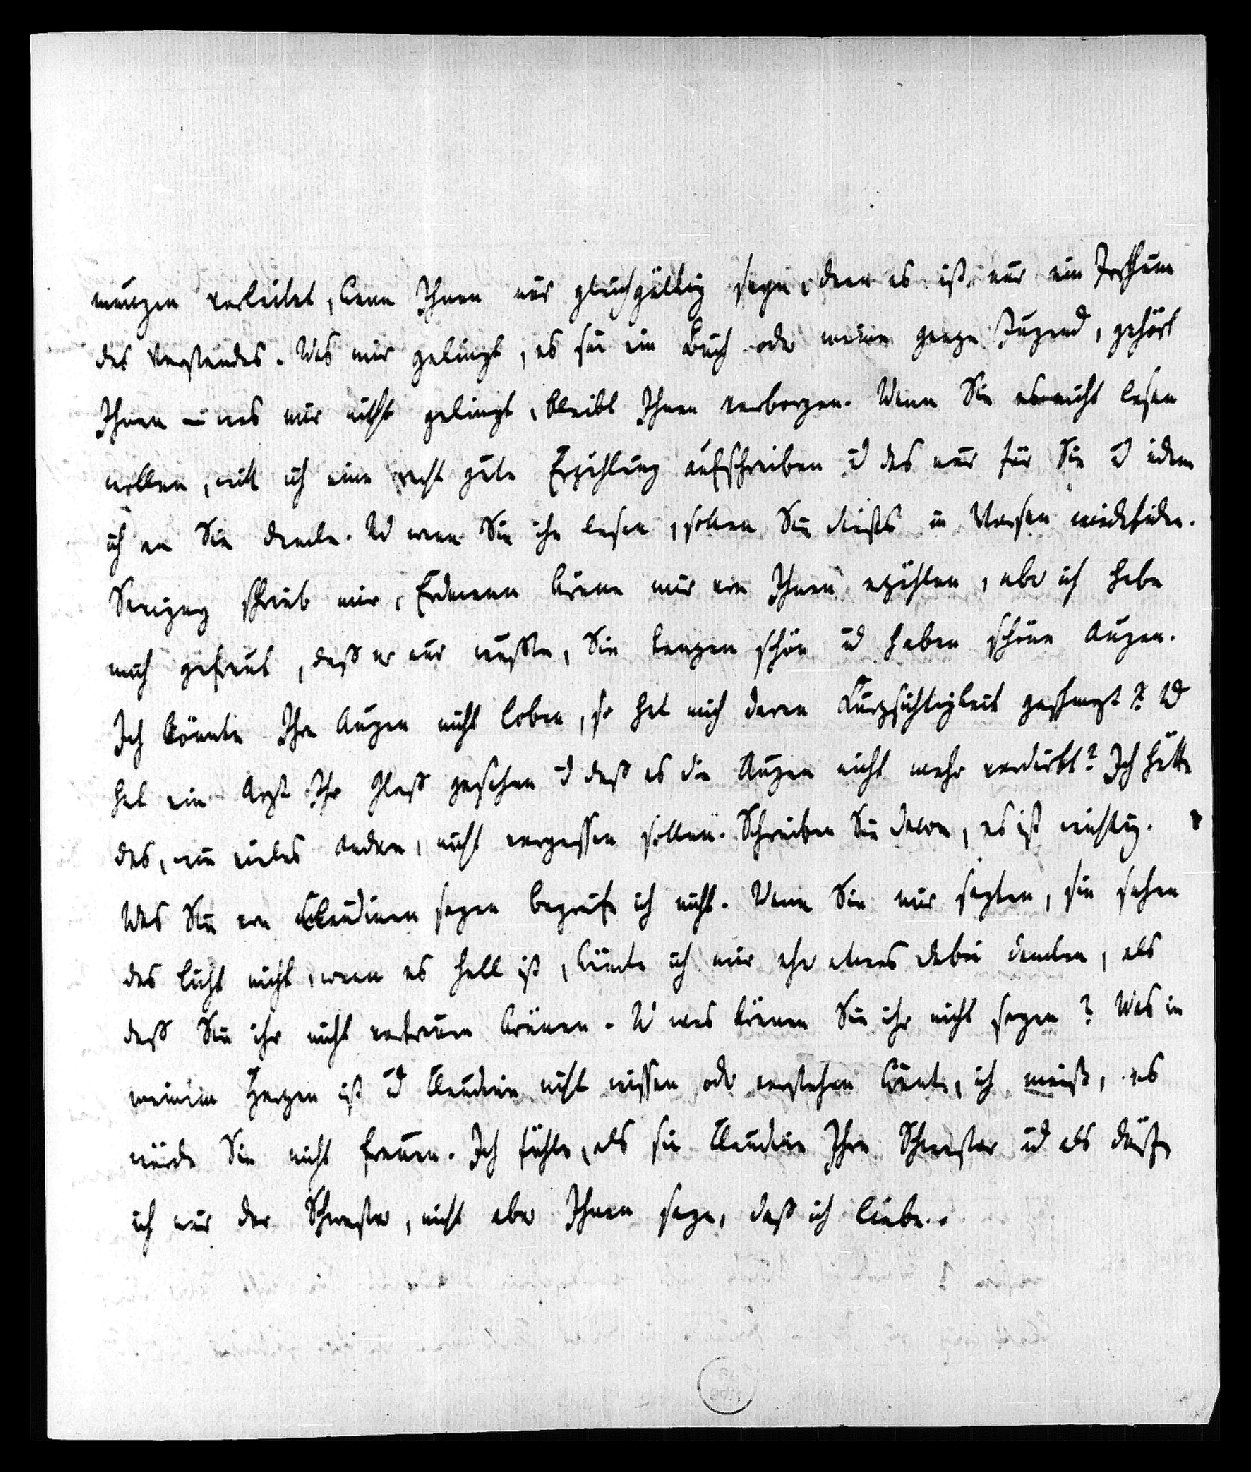 nungen verleitet, kann Ihnen nur gleichgültig seyn, denn es ist nur ein Irrthum
des Verstandes. Was mir gelingt, es sei ein Buch oder meine ganze Jugend, gehört
Ihnen – was mir nicht gelingt, bleibt Ihnen verborgen. Wenn Sie es nicht lesen
wollen, will ich eine recht gute Erzählung aufschreiben u̅d das nur für Sie u̅d indem
ich an Sie denke. U wenn Sie sie lesen, sollen Sie dieß in Versen
schrieb mir, Erdmann könne mir von Ihnen erzählen, aber ich habe
mich gefreut, daß er nur wußte, Sie tanzen schön u̅d haben schöne Augen.
Ich könnte Ihre Augen nicht loben, so hat mich deren Kurzsichtigkeit geschmerzt. Ud
hat ein Arzt Ihr Glaß gesehen u̅d daß es die Augen nicht mehr verdirbt? Ich hätte
das, wie vieles andere, nicht vergessen sollen. Schreiben Sie davon, es ist wichtig.
Was Sie von Claudinen sagen begreife ich nicht. Wenn Sie mir sagten, sie sehen
das Licht nicht, wenn es hell ist, könnte ich mir eher etwas dabei denken, als
daß Sie ihr nicht vertrauen können. U was können Sie ihr nicht sagen? Was in
meinem Herzen ist u̅d Claudine nicht wissen oder verstehen könnte, ich weiß, es
würde Sie nicht freuen. Ich fühle, als sei Claudine Ihre Schwester u̅d als dürfe
ich nur der Schwester, nicht aber Ihnen sagen, daß ich liebe.